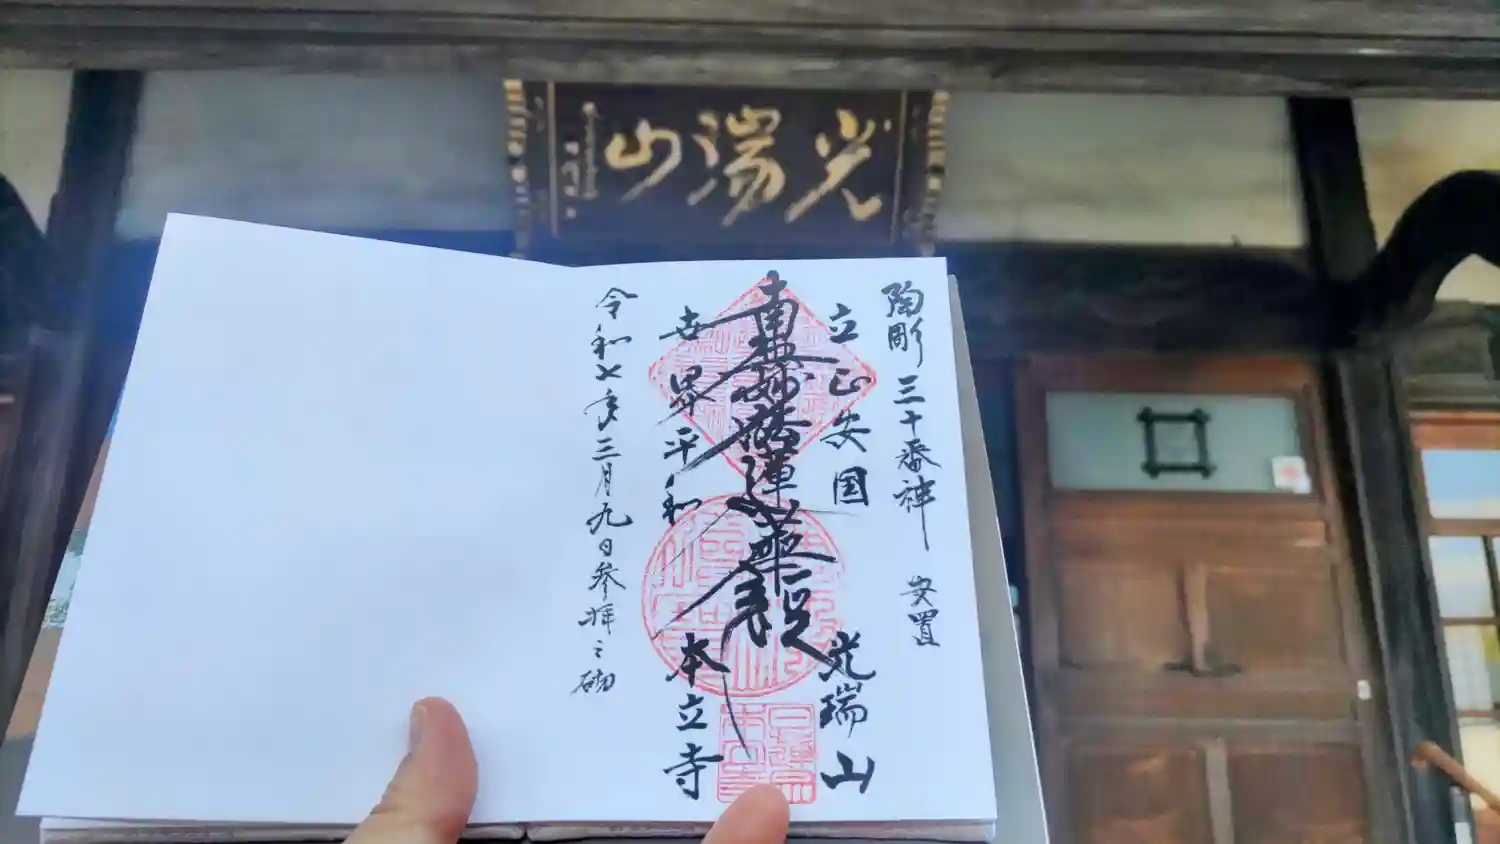 光瑞山
陶彫三十番神 安置
立正安国 光瑞山
南無妙法蓮華経
世界平和 本立寺
令和七年三月九日参拝之砌